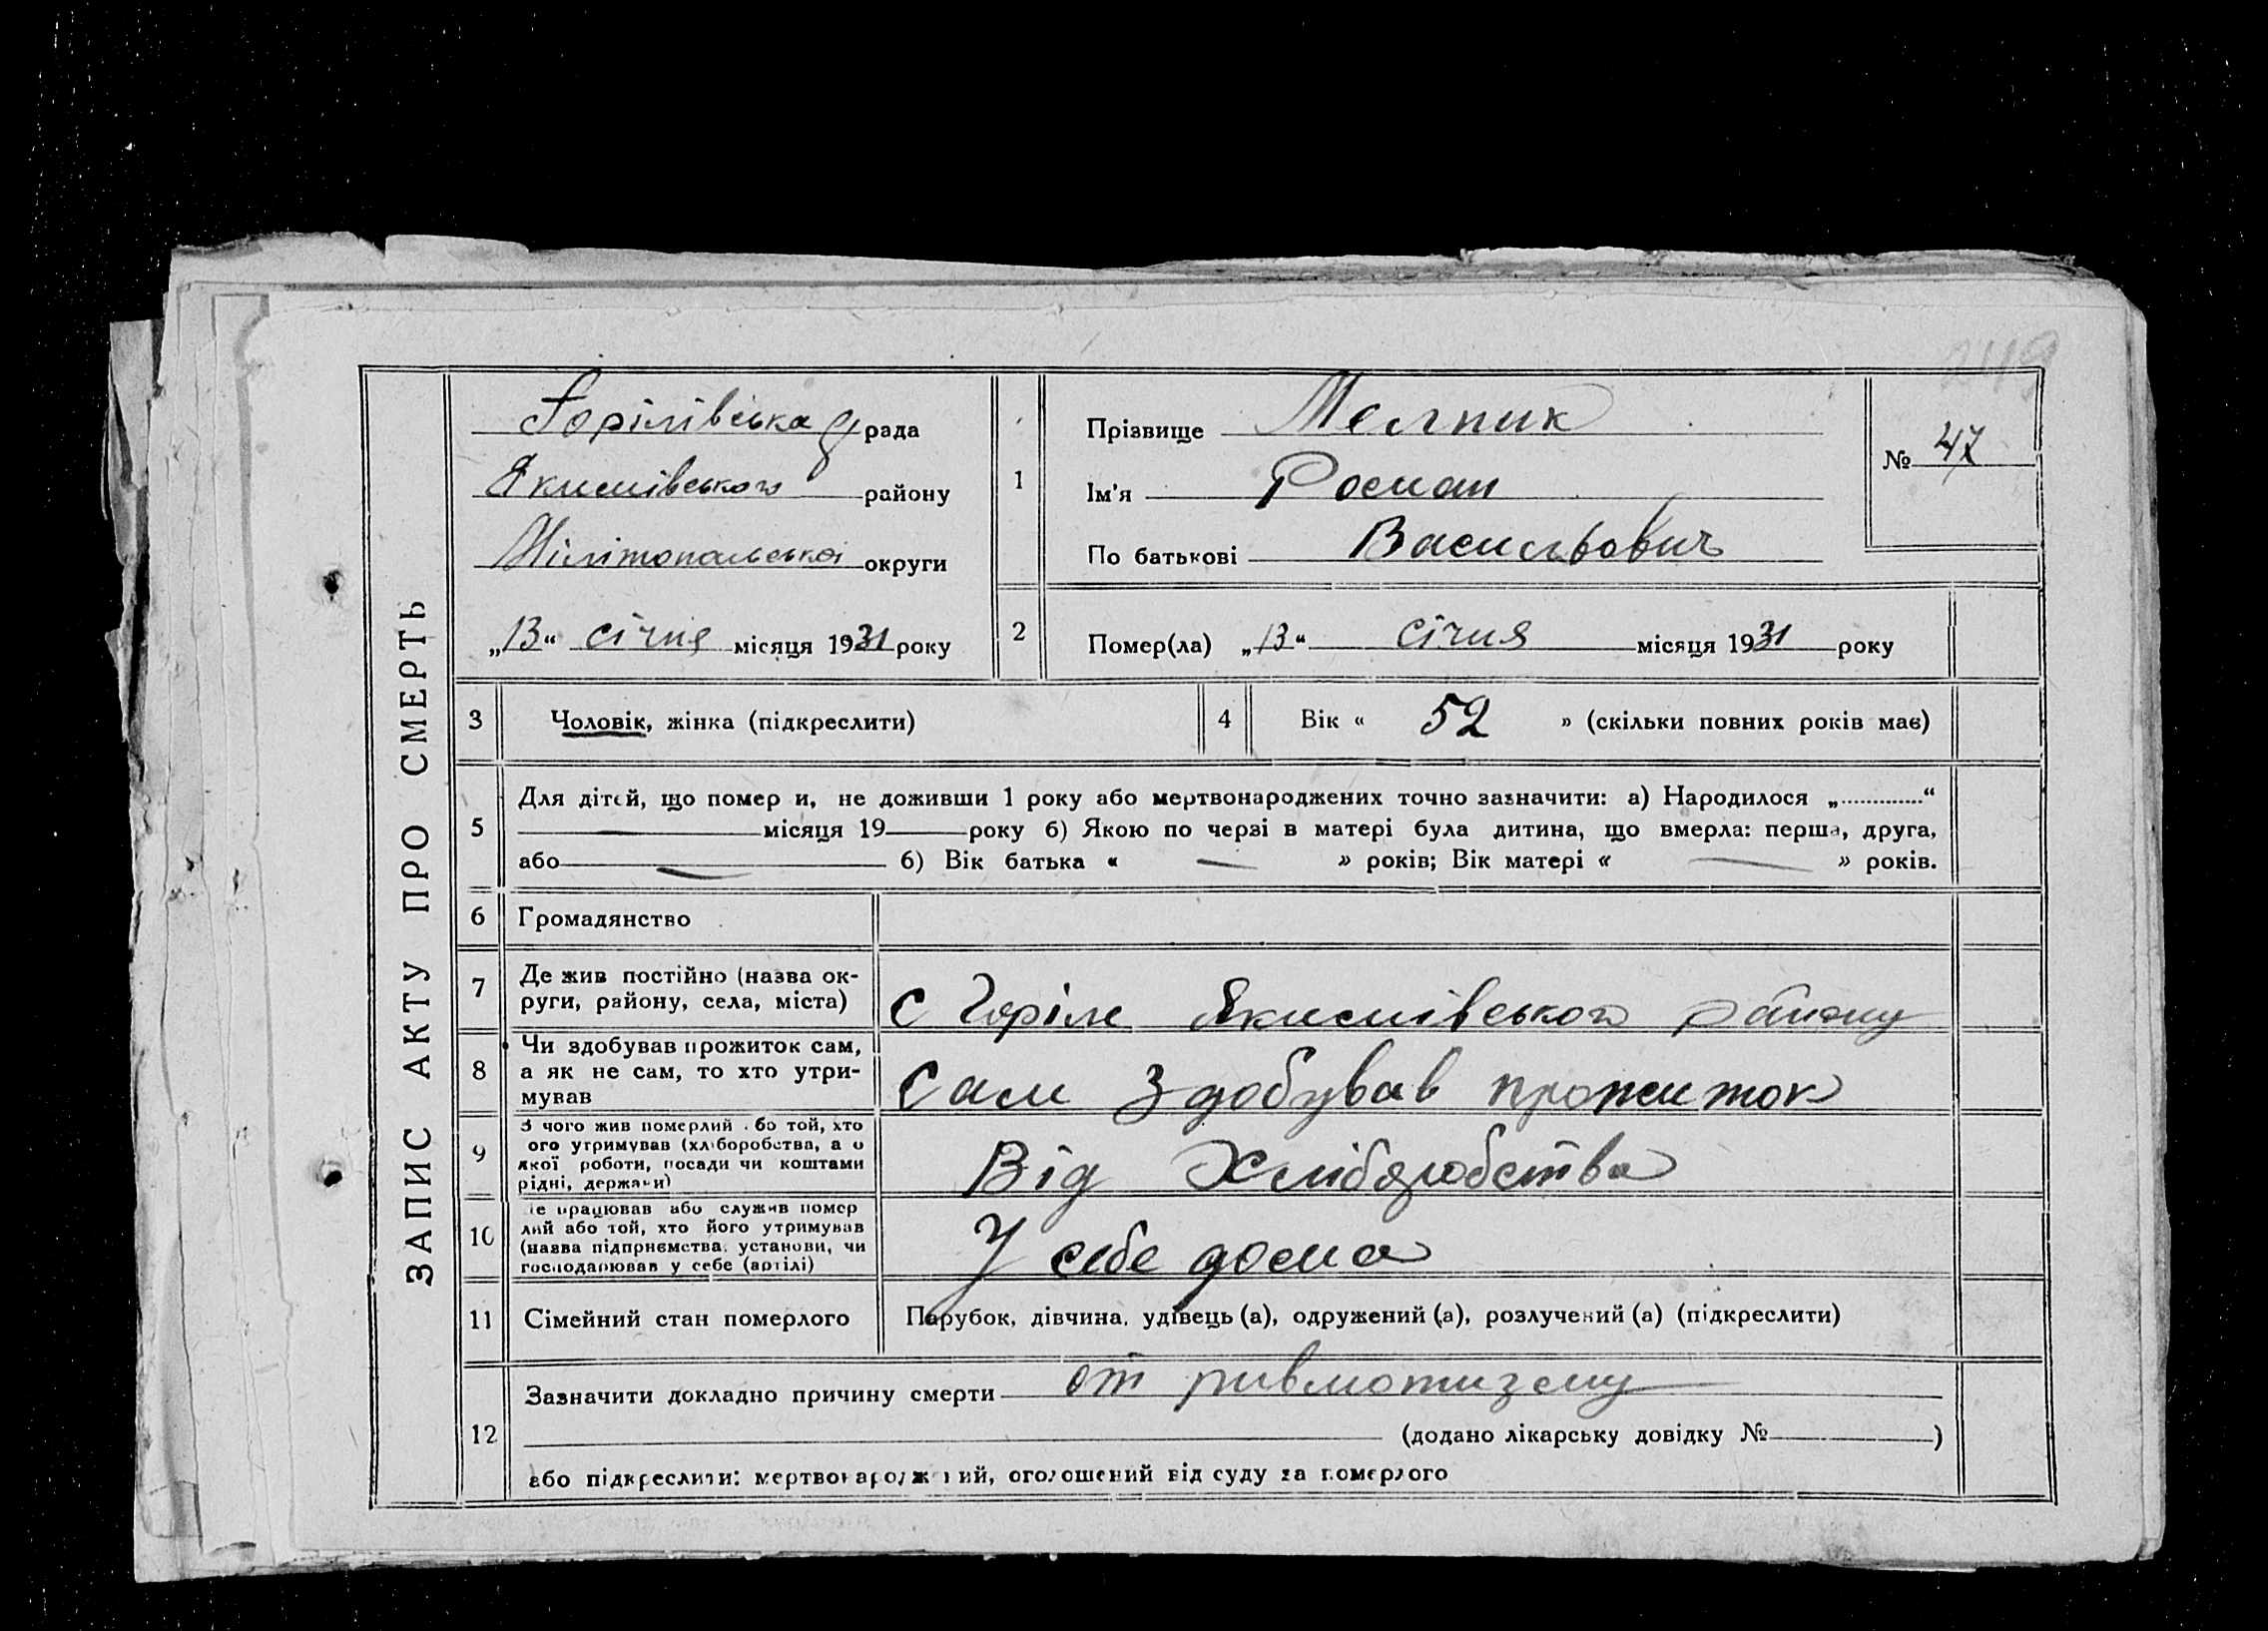 249
ЗАПИС АКТУ ПРО СМЕРТЬ
Горілівська рада
Якимівського району
Мілітопольської округи
„13“ січня місяця 1931 року
1
Прізвище Мелник
Ім'я Роман
По батькові Васильович
№ 47
2
Помер(ла) „13“ січня місяця 1931 року
3 Чоловік, жінка (підкреслити)
4 Вік « 52 » (скільки повних років має)
5
Для дітей, що помер и, не доживши 1 року або мертвонароджених точно зазначити: а) Народилося „.............“
місяця 19 року б) Якою по черзі в матері була дитина, що вмерла: перша, друга,
або — б) Вік батька « — » років; Вік матері « — » років.
6 Громадянство
7
Де жив постійно (назва ок-
руги, району, села, міста)
с Горіле Якимівського району
8
Чи здобував прожиток сам,
а як не сам, то хто утри-
мував
Сам здобував прожиток
9
З чого жив померлий або той, хто
ого утримував (хліборобства, а о
якої роботи, посади чи коштами
рідні, держави)
Від Хліборобства
10
е працював або служив помер
лий або той, хто його утримував
(назва підприємства, установи, чи
господарював у себе (артілі)
У себе дома
11 Сімейний стан померлого
Парубок, дівчина, удівець (а), одружений (а), розлучений (а) (підкреслити)
12
Зазначити докладно причину смерти от ривмотизму
(додано лікарську довідку № )
або підкреслити: мертвонароджений, оголошений від суду за померлого